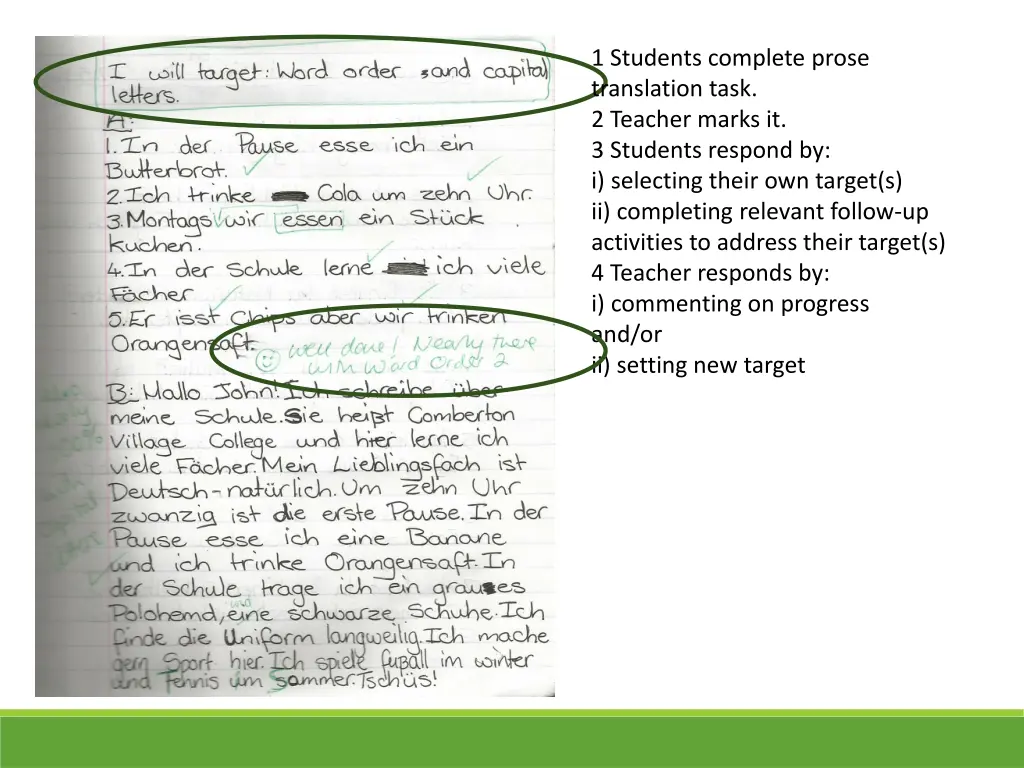 I will target: Word order , and capital
letters.
A:
1. In der Pause esse ich ein
Butterbrot.
2. Ich trinke Cola um zehn Uhr.
3. Montags wir essen ein Stück
Kuchen.
4. In der Schule lerne ich viele
Fächer
5. Er isst Chips aber wir trinken
Orangensaft.
well done! Nearly there
with Word Order 2
B: Hallo John! Ich schreibe über
meine Schule. Sie heißt Comberton
Village College und hier lerne ich
viele Fächer. Mein Lieblingsfach ist
Deutsch - natürlich. Um zehn Uhr
zwanzig ist die erste Pause. In der
Pause esse ich eine Banane
und ich trinke Orangensaft. In
der Schule trage ich ein graues
Polohemd, eine schwarze Schuhe. Ich
und
finde die Uniform langweilig. Ich mache
gern Sport hier. Ich spiele fußall im winter
und Tennis im Sommer. Tschüs!
1 Students complete prose
translation task.
2 Teacher marks it.
3 Students respond by:
i) selecting their own target(s)
ii) completing relevant follow-up
activities to address their target(s)
4 Teacher responds by:
i) commenting on progress
and/or
ii) setting new target